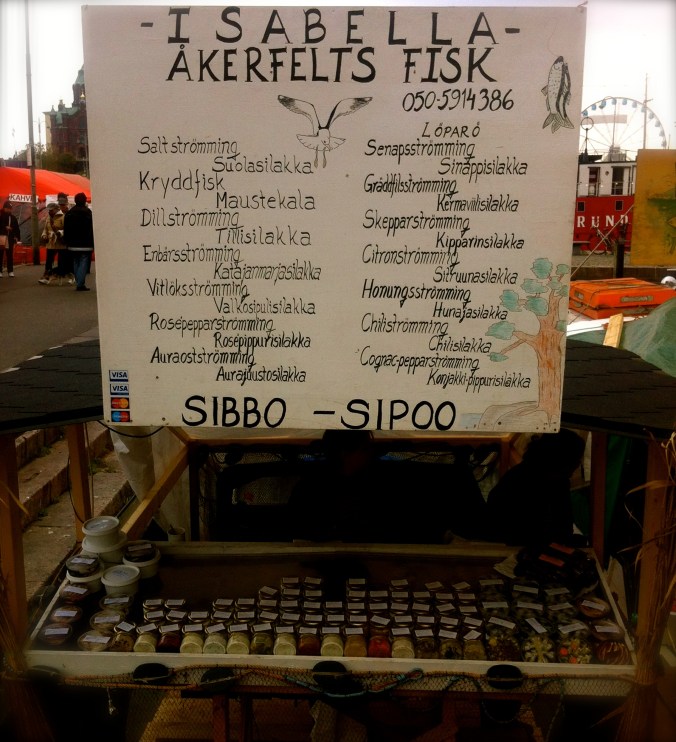 -ISABELLA-
ÅKERFELTS FISK
050-5914386
Saltströmming
Suolasilakka
Kryddfisk
Maustekala
Dillströmming
Tillisilakka
Enbärsströmming
Katajanmarjasilakka
Vitlöksströmming
Valkosipulisilakka
Rosépepparströmming
Rosépippurisilakka
Auraostströmming
Aurajuustosilakka
LÖPARÖ
Senapsströmming
Sinappisilakka
Gräddfilsströmming
Kermaviilisilakka
Skepparströmming
Kipparinsilakka
Citronströmming
Sitruunasilakka
Honungsströmming
Hunajasilakka
Chiliströmming
Chilisilakka
Cognac-pepparströmming
Konjakki-pippurisilakka
VISA
VISA
SIBBO - SIPOO
KAHVI
RUND